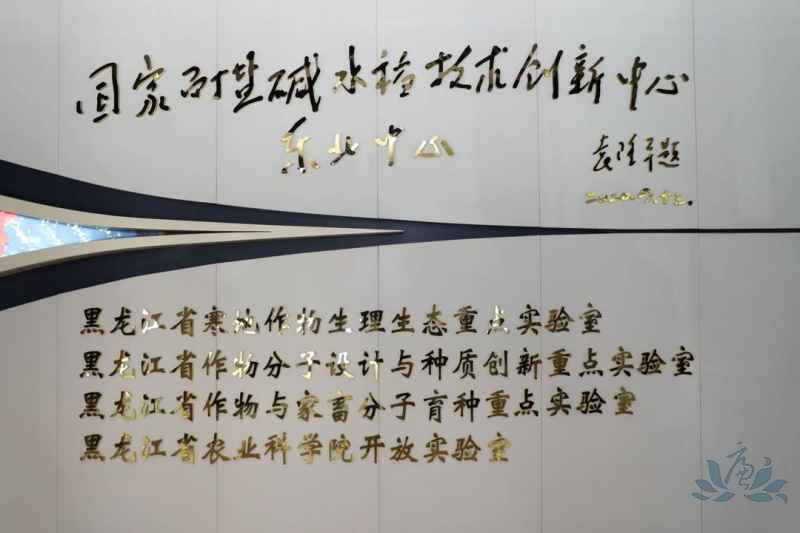 国家耐盐碱水稻技术创新中心
东北中心
袁隆平题
黑龙江省寒地作物生理生态重点实验室
黑龙江省作物分子设计与种质创新重点实验室
黑龙江省作物与家畜分子育种重点实验室
黑龙江省农业科学院开放实验室
廉